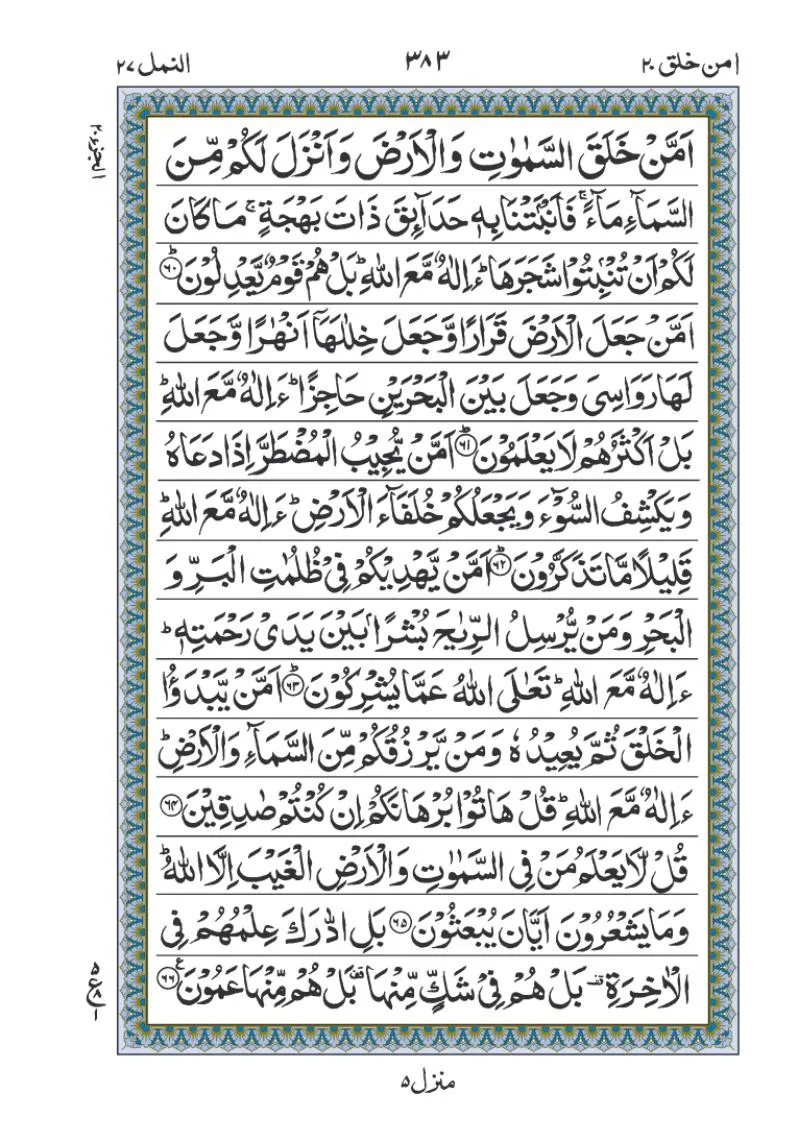 امن خلق ٢٠
٣٨٣
النمل ٢٧
الجزء ٢٠
اَمَّنْ خَلَقَ السَّمٰوٰتِ وَالْاَرْضَ وَاَنْزَلَ لَكُمْ مِّنَ
السَّمَآءِ مَآءً ۚ فَاَنْۢبَتْنَا بِهٖ حَدَآئِقَ ذَاتَ بَهْجَةٍ ۚ مَا كَانَ
لَكُمْ اَنْ تُنْۢبِتُوْا شَجَرَهَا ؕ ءَاِلٰهٌ مَّعَ اللّٰهِ ؕ بَلْ هُمْ قَوْمٌ يَّعْدِلُوْنَ ؕ ﴿٦٠﴾
اَمَّنْ جَعَلَ الْاَرْضَ قَرَارًا وَّجَعَلَ خِلٰلَهَاۤ اَنْهٰرًا وَّجَعَلَ
لَهَا رَوَاسِىَ وَجَعَلَ بَيْنَ الْبَحْرَيْنِ حَاجِزًا ؕ ءَاِلٰهٌ مَّعَ اللّٰهِ ؕ
بَلْ اَكْثَرُهُمْ لَا يَعْلَمُوْنَ ؕ ﴿٦١﴾ اَمَّنْ يُّجِيْبُ الْمُضْطَرَّ اِذَا دَعَاهُ
وَيَكْشِفُ السُّوْٓءَ وَيَجْعَلُكُمْ خُلَفَآءَ الْاَرْضِ ؕ ءَاِلٰهٌ مَّعَ اللّٰهِ ؕ
قَلِيْلًا مَّا تَذَكَّرُوْنَ ؕ ﴿٦٢﴾ اَمَّنْ يَّهْدِيْكُمْ فِىْ ظُلُمٰتِ الْبَرِّ وَ
الْبَحْرِ وَمَنْ يُّرْسِلُ الرِّيٰحَ بُشْرًۢا بَيْنَ يَدَىْ رَحْمَتِهٖ ؕ
ءَاِلٰهٌ مَّعَ اللّٰهِ ؕ تَعٰلَى اللّٰهُ عَمَّا يُشْرِكُوْنَ ؕ ﴿٦٣﴾ اَمَّنْ يَّبْدَؤُا
الْخَلْقَ ثُمَّ يُعِيْدُهٗ وَمَنْ يَّرْزُقُكُمْ مِّنَ السَّمَآءِ وَالْاَرْضِ ؕ
ءَاِلٰهٌ مَّعَ اللّٰهِ ؕ قُلْ هَاتُوْا بُرْهَانَكُمْ اِنْ كُنْتُمْ صٰدِقِيْنَ ﴿٦٤﴾
قُلْ لَّا يَعْلَمُ مَنْ فِى السَّمٰوٰتِ وَالْاَرْضِ الْغَيْبَ اِلَّا اللّٰهُ ؕ
وَمَا يَشْعُرُوْنَ اَيَّانَ يُبْعَثُوْنَ ﴿٦٥﴾ بَلِ ادّٰرَكَ عِلْمُهُمْ فِى
الْاٰخِرَةِ ۫ بَلْ هُمْ فِىْ شَكٍّ مِّنْهَا ۫ بَلْ هُمْ مِّنْهَا عَمُوْنَ ﴿٦٦﴾
منزل ٥